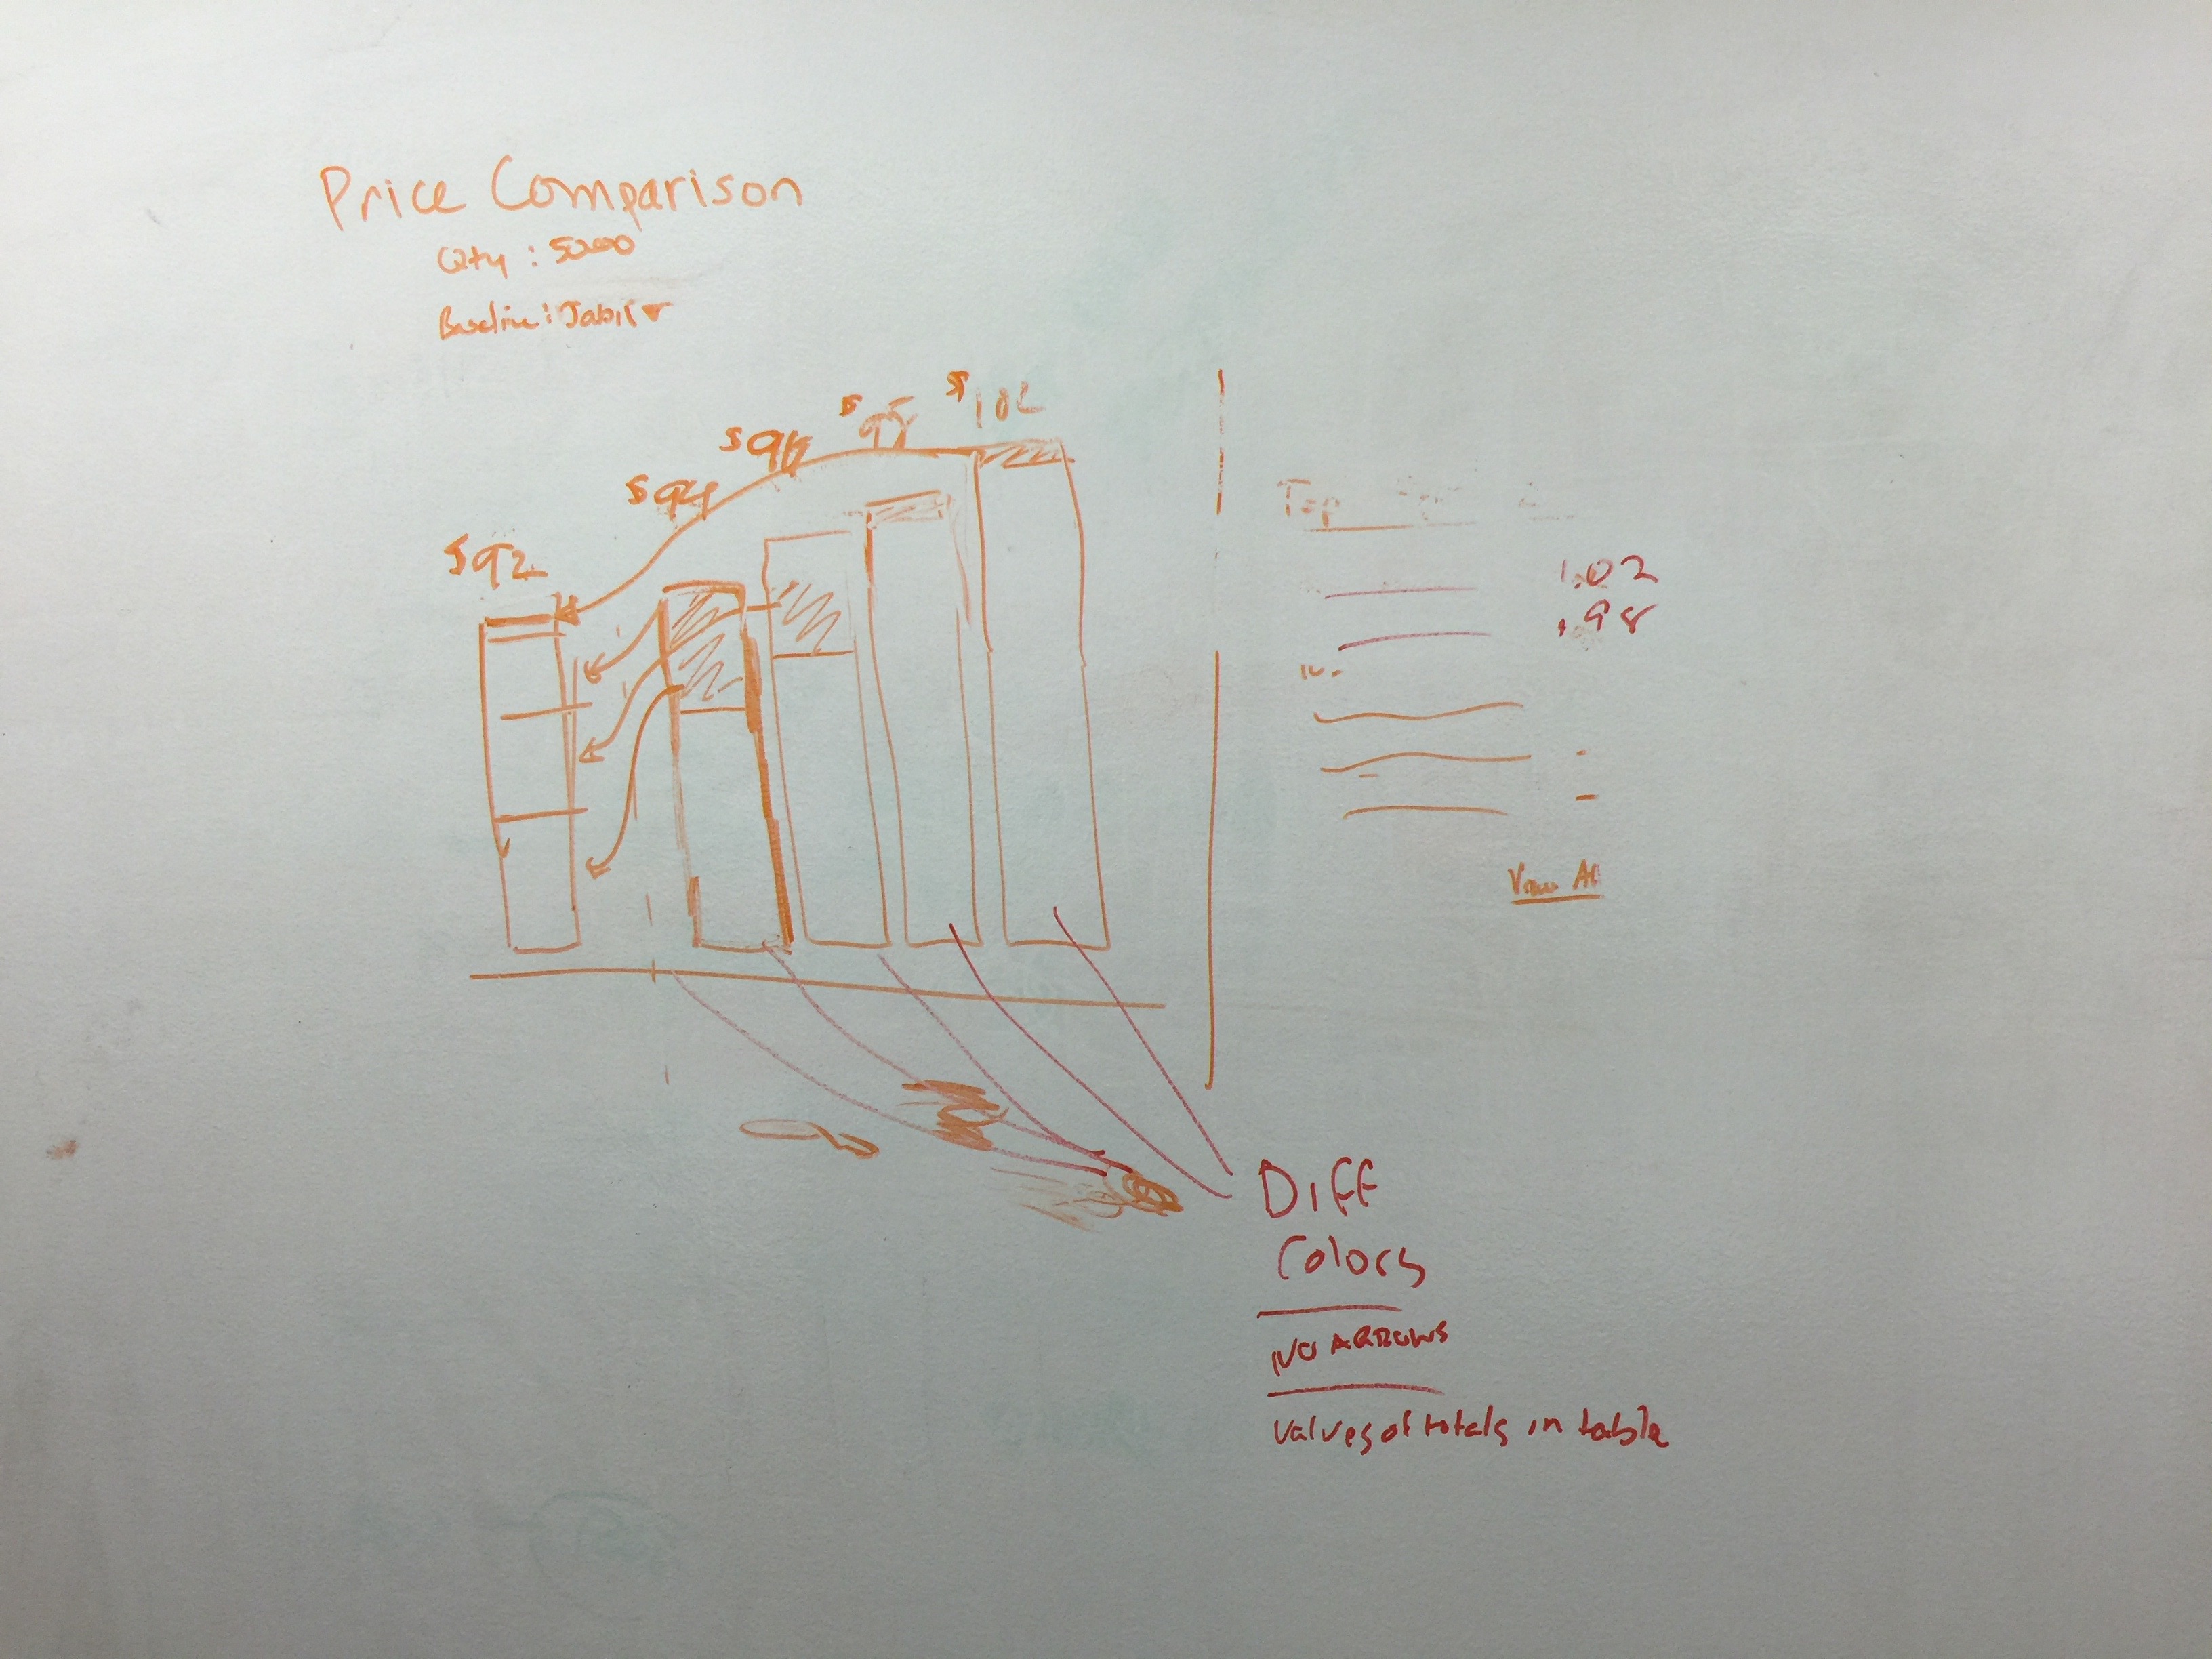 Price Comparison
Qty : 5000
Baseline: Jabil
$102
$96
$94
$92
Top
1.02
.98
View All
Diff
Colors
NO ARROWS
values of totals in table